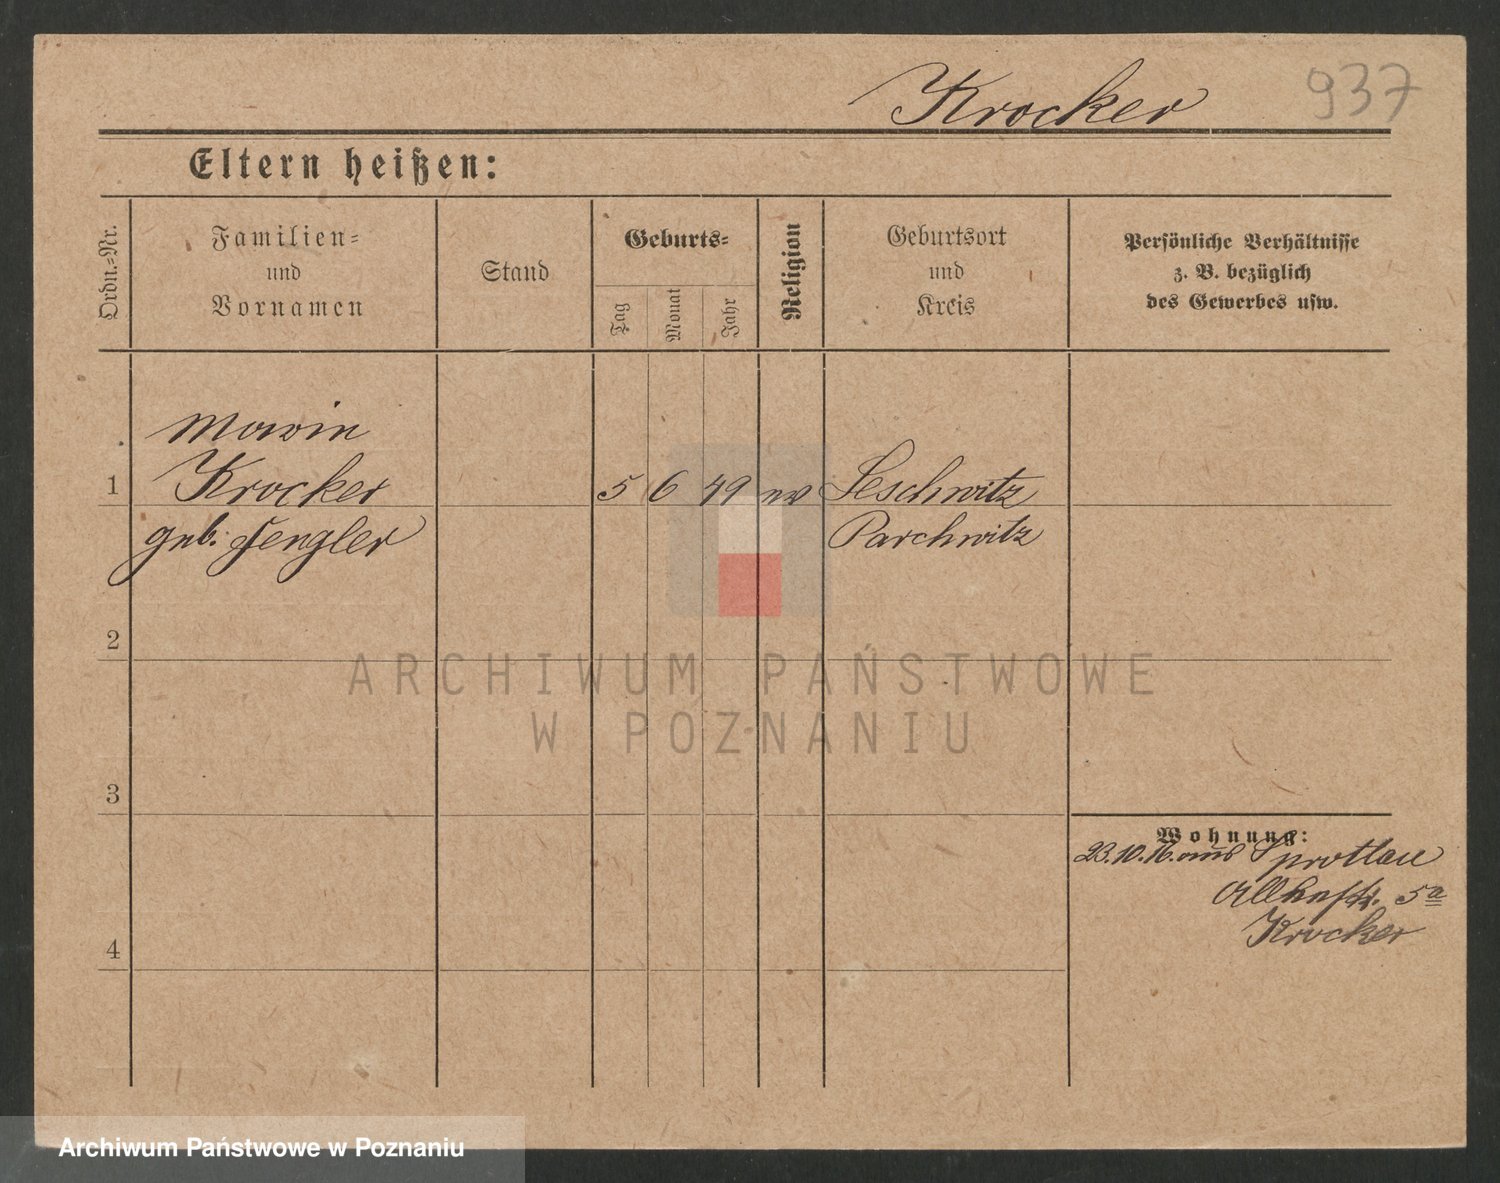 Krocker 937
Eltern heißen:
Ordn.-Nr.
Familien-
und
Vornamen
Stand
Geburts-
Tag
Monat
Jahr
Religion
Geburtsort
und
Kreis
Persönliche Verhältnisse
z. B. bezüglich
des Gewerbes usw.
Krocker
1 5 6 49 Leschwitz
geb. Fengler Parchwitz
2
ARCHIWUM PAŃSTWOWE
W POZNANIU
3
Wohnung:
23.10.16. aus Sprottau
5a
Krocker
4
Archiwum Państwowe w Poznaniu